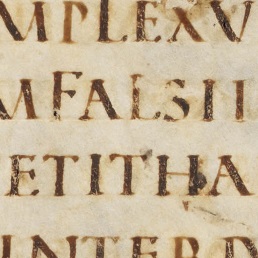 MPLEXV
MFALSII
ETITHA
INTERD